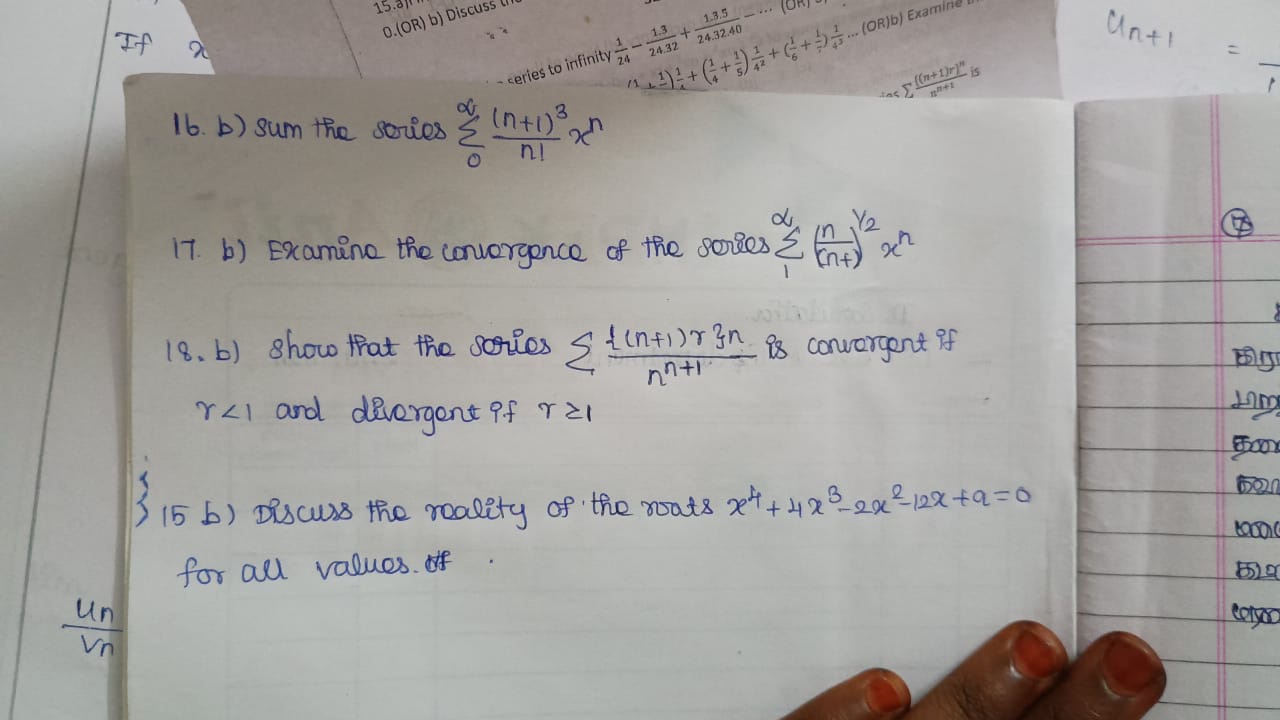 15.a)
0.(OR) b) Discuss
series to infinity 1/24 - 1.3/24.32 + 1.3.5/24.32.40 - ... (OR)
1/4 + (1/4 + 1/5) 1/4² + (1/6 + 1/7) 1/4³ ... (OR)b) Examine
Σ {(n+1)r}ⁿ/nⁿ⁺¹ is
If x
Uₙ₊₁ =
16. b) Sum the series Σ₀^∝ (n+1)³/n! xⁿ
17. b) Examine the convergence of the series Σ₁^∝ (n/n+)^1/2 xⁿ
18. b) Show that the series Σ {(n+1)r}n/nⁿ⁺¹ is convergent if
r<1 and divergent if r≥1
15 b) Discuss the reality of the roots x⁴+4x³-2x²-12x+a=0
for all values.
Un/Vn